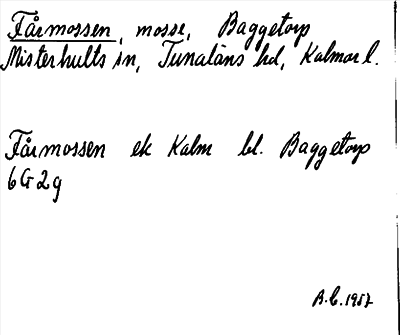 Fårmossen, mosse, Baggetorp
Misterhults sn, Tunaläns hd, Kalmar l.
Fårmossen ek Kalm bl. Baggetorp
6G2g
A.C. 1957